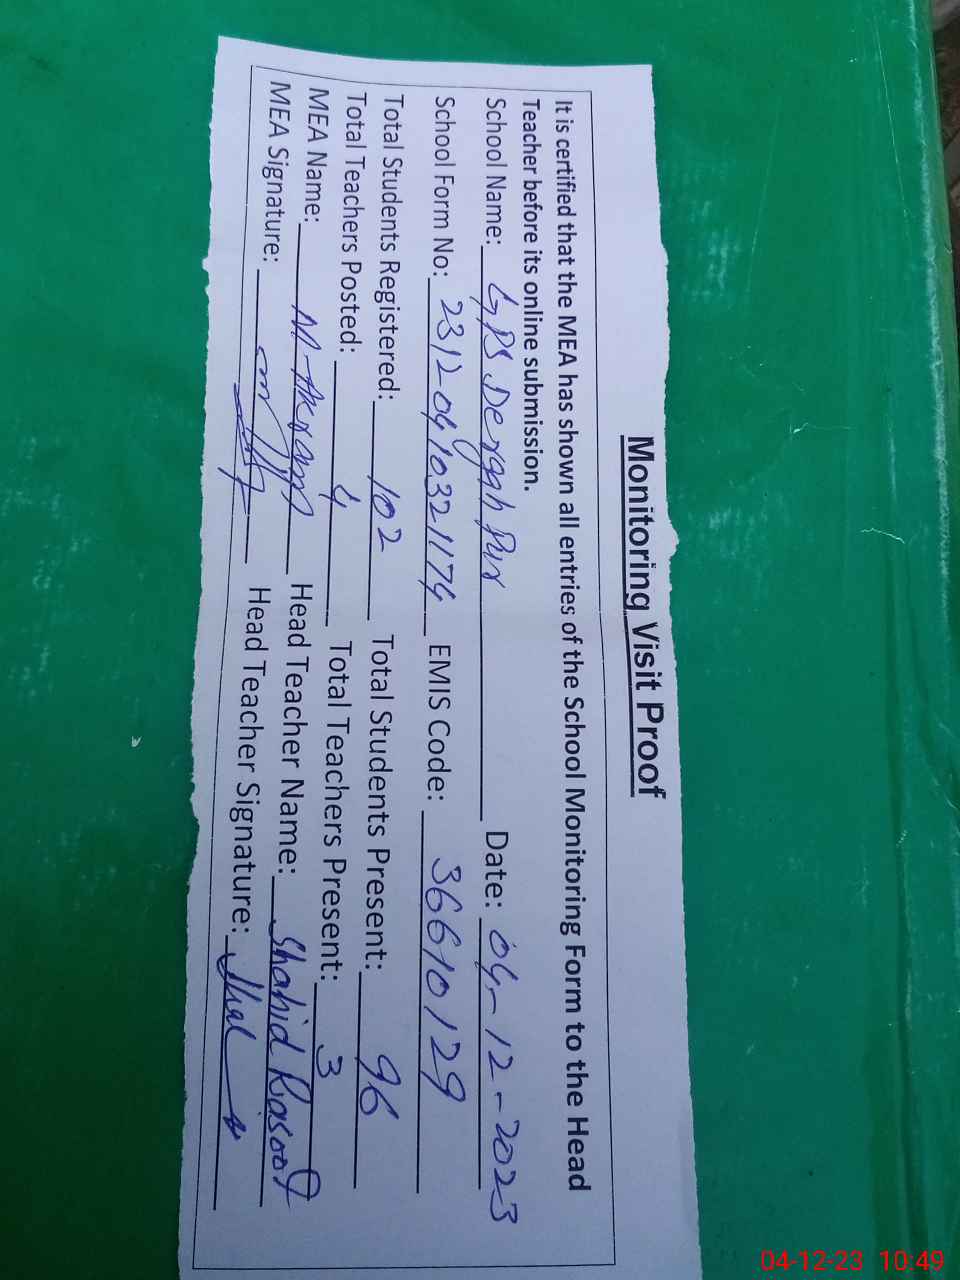 Monitoring Visit Proof
It is certified that the MEA has shown all entries of the School Monitoring Form to the Head
Teacher before its online submission.
School Name: GPS Dergah Pur Date: 04-12-2023
School Form No: 231204103211174 EMIS Code: 36610129
Total Students Registered: 102 Total Students Present: 96
Total Teachers Posted: 4 Total Teachers Present: 3
MEA Name: M. Akram Head Teacher Name: Shahid Rasool
MEA Signature: Head Teacher Signature:
04-12-23 10:49